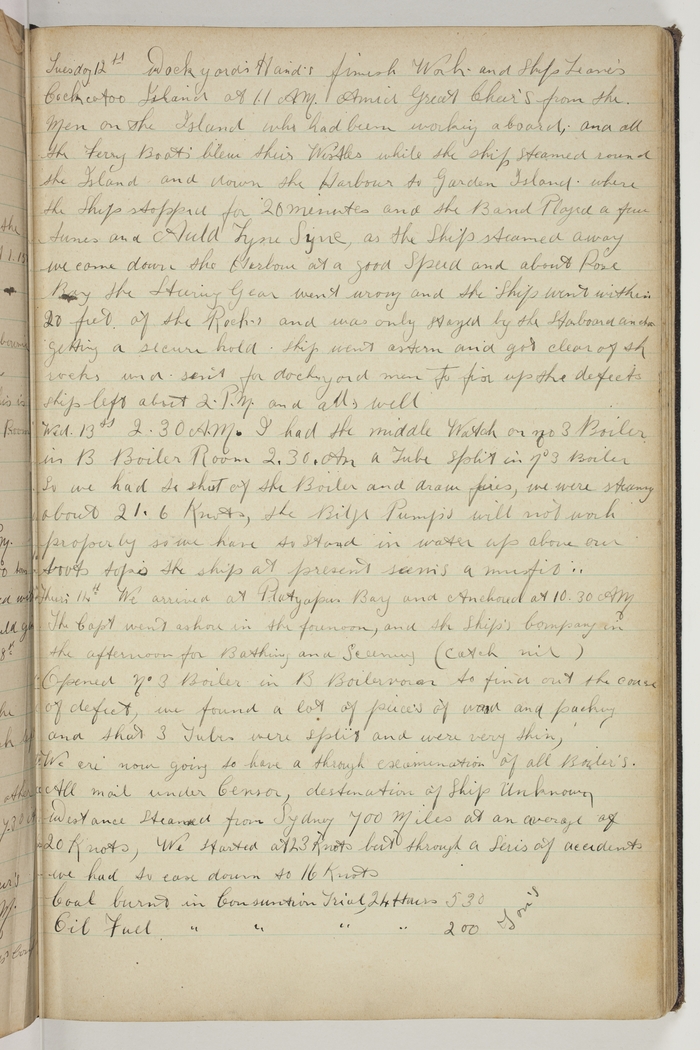 Tuesday 12th Dockyards Hands finish Work and Ship Leaves
Cockatoo Island at 11 AM. Amid Great Cheers from the
Men on the Island who had been working aboard, and all
the Ferry Boats blew their Wistles while the ship steamed round
the Island and down the Harbour to Garden Island where
the Ship stopped for 20 minutes and the Band Played a few
tunes and Auld Lyne Syne, as the Ship steamed away
we came down the Harbour at a good Speed and about Rose
Bay the Steering Gear went wrong and the Ship went within
20 feet of the Rocks and was only stayed by the Staboard anchor
getting a secure hold. Ship went astern and got clear of th
rocks and sent for dockyard men to fix up the defects
ship left about 2. P.M. and all's well
Wed. 13th 2.30 AM. I had the middle Watch on No 3 Boiler
in B Boiler Room 2.30. Am a Tube Split in No 3 Boiler
So we had to shut of the Boiler and draw fires, we were steaming
about 21.6 Knots, the Bilge Pumps will not work
properly so we have to stand in water up above our
boots tops the ship at present seems a misfit
Thurs 14th We arrived at Platypus Bay and Anchored at 10.30 AM
The Capt went ashore in the forenoon, and the Ship's Company in
the afternoon for Bathing and Seening (catch nil)
Opened No 3 Boiler in B Boilerroom to find out the cause
of defect, we found a lot of pieces of wood and packing
and that 3 Tubes were split and were very thin,
We are now going to have a through examination of all Boiler's.
All mail under Censor, destination of Ship Unknown
Distance Steamed from Sydney 700 Miles at an average of
20 Knots, We started at 23 Knots but through a Seris of accidents
we had to ease down to 16 Knots
Coal burnt in Consumtion Trial, 24 Hours 530
Oil Fuel " " " " 200 Ton's